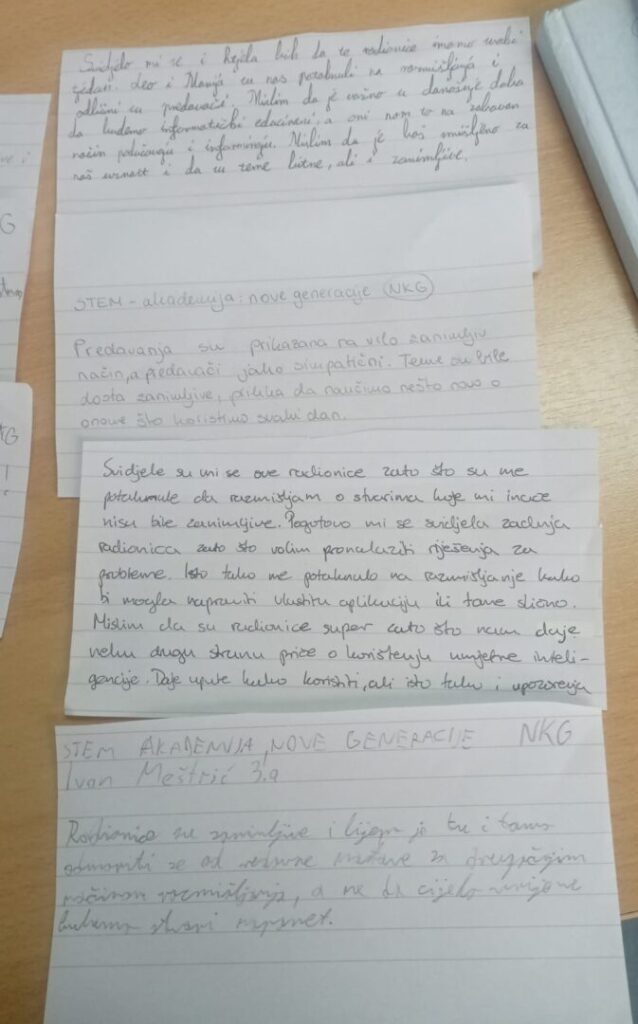 Svidjelo mi se i htjela bih da te radionice imamo svaki
tjedan. Leo i Manja su nas potaknuli na razmišljanja i
odlični su predavači. Mislim da je važno u današnje doba
da budemo informatički educirani, a oni nam to na zabavan
način podučavaju i informiraju. Mislim da je baš smišljeno za
naš uzrast i da su teme bitne, ali i zanimljive.
STEM - akademija: nove generacije NKG
Predavanja su prikazana na vrlo zanimljiv
način, a predavači jako simpatični. Teme su bile
dosta zanimljive, prilika da naučimo nešto novo o
onome što koristimo svaki dan.
Svidjele su mi se ove radionice zato što su me
potaknule da razmišljam o stvarima koje mi inače
nisu bile zanimljive. Pogotovo mi se svidjela zadnja
radionica zato što volim pronalaziti rješenja za
probleme. Isto tako me potaknulo na razmišljanje kako
bi mogla napraviti vlastitu aplikaciju ili tome slično.
Mislim da su radionice super zato što nam daje
neku drugu stranu priče o korištenju umjetne inteli-
gencije. Daje upute kako koristiti, ali isto tako i upozorenja
STEM AKADEMIJA, NOVE GENERACIJE NKG
Ivan Meštrić 3.a
Radionice su zanimljive i lijepo je tu i tamo
odmoriti se od nastave za drugačijim
načinom razmišljanja, a ne da cijelo vrijeme
bubamo stvari napamet.
NKG